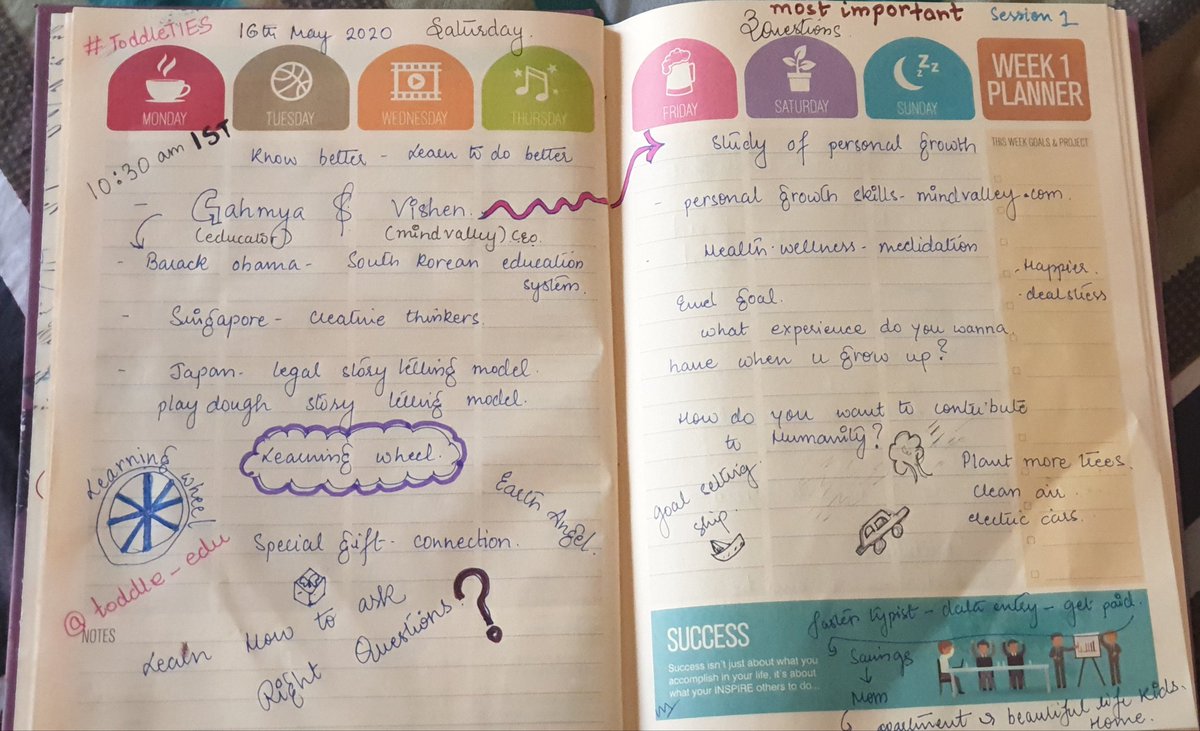 #ToddleTIES 16th May 2020 Saturday
MONDAY TUESDAY WEDNESDAY THURSDAY
10:30 am 1ST
Know better - Learn to do better
- Gahmya & Vishen
(educator) (mindvalley) CEO.
- Barack Obama - South Korean education
system.
- Singapore - Creative thinkers.
- Japan - legal story telling model.
play dough story telling model.
Learning wheel.
Learning wheel
Earth Angel.
Special gift - connection.
@toddle_edu
NOTES
Learn How to ask
Right Questions. ?
most important Session 1
3 Questions.
FRIDAY SATURDAY SUNDAY
WEEK 1
PLANNER
THIS WEEK GOALS & PROJECT
Study of personal growth
- personal growth skills - mindvalley.com
Health - wellness - medidation
- Happier.
- deal stress
End goal.
what experience do you wanna
have when u grow up?
How do you want to contribute
to Humanity?
goal setting
ship.
Plant more trees.
clean air.
electric cars.
SUCCESS
Success isn't just about what you
accomplish in your life, it's about
what your INSPIRE others to do...
faster typist - data entry - get paid.
Savings
Mom
apartment is beautiful life Kids.
Home.